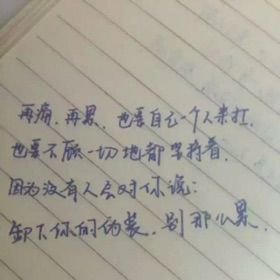 再痛,再累,也要自己一个人来扛,
也要不顾一切地都坚持着,
因为没有人会对你说:
卸下你的伪装,别那么累.